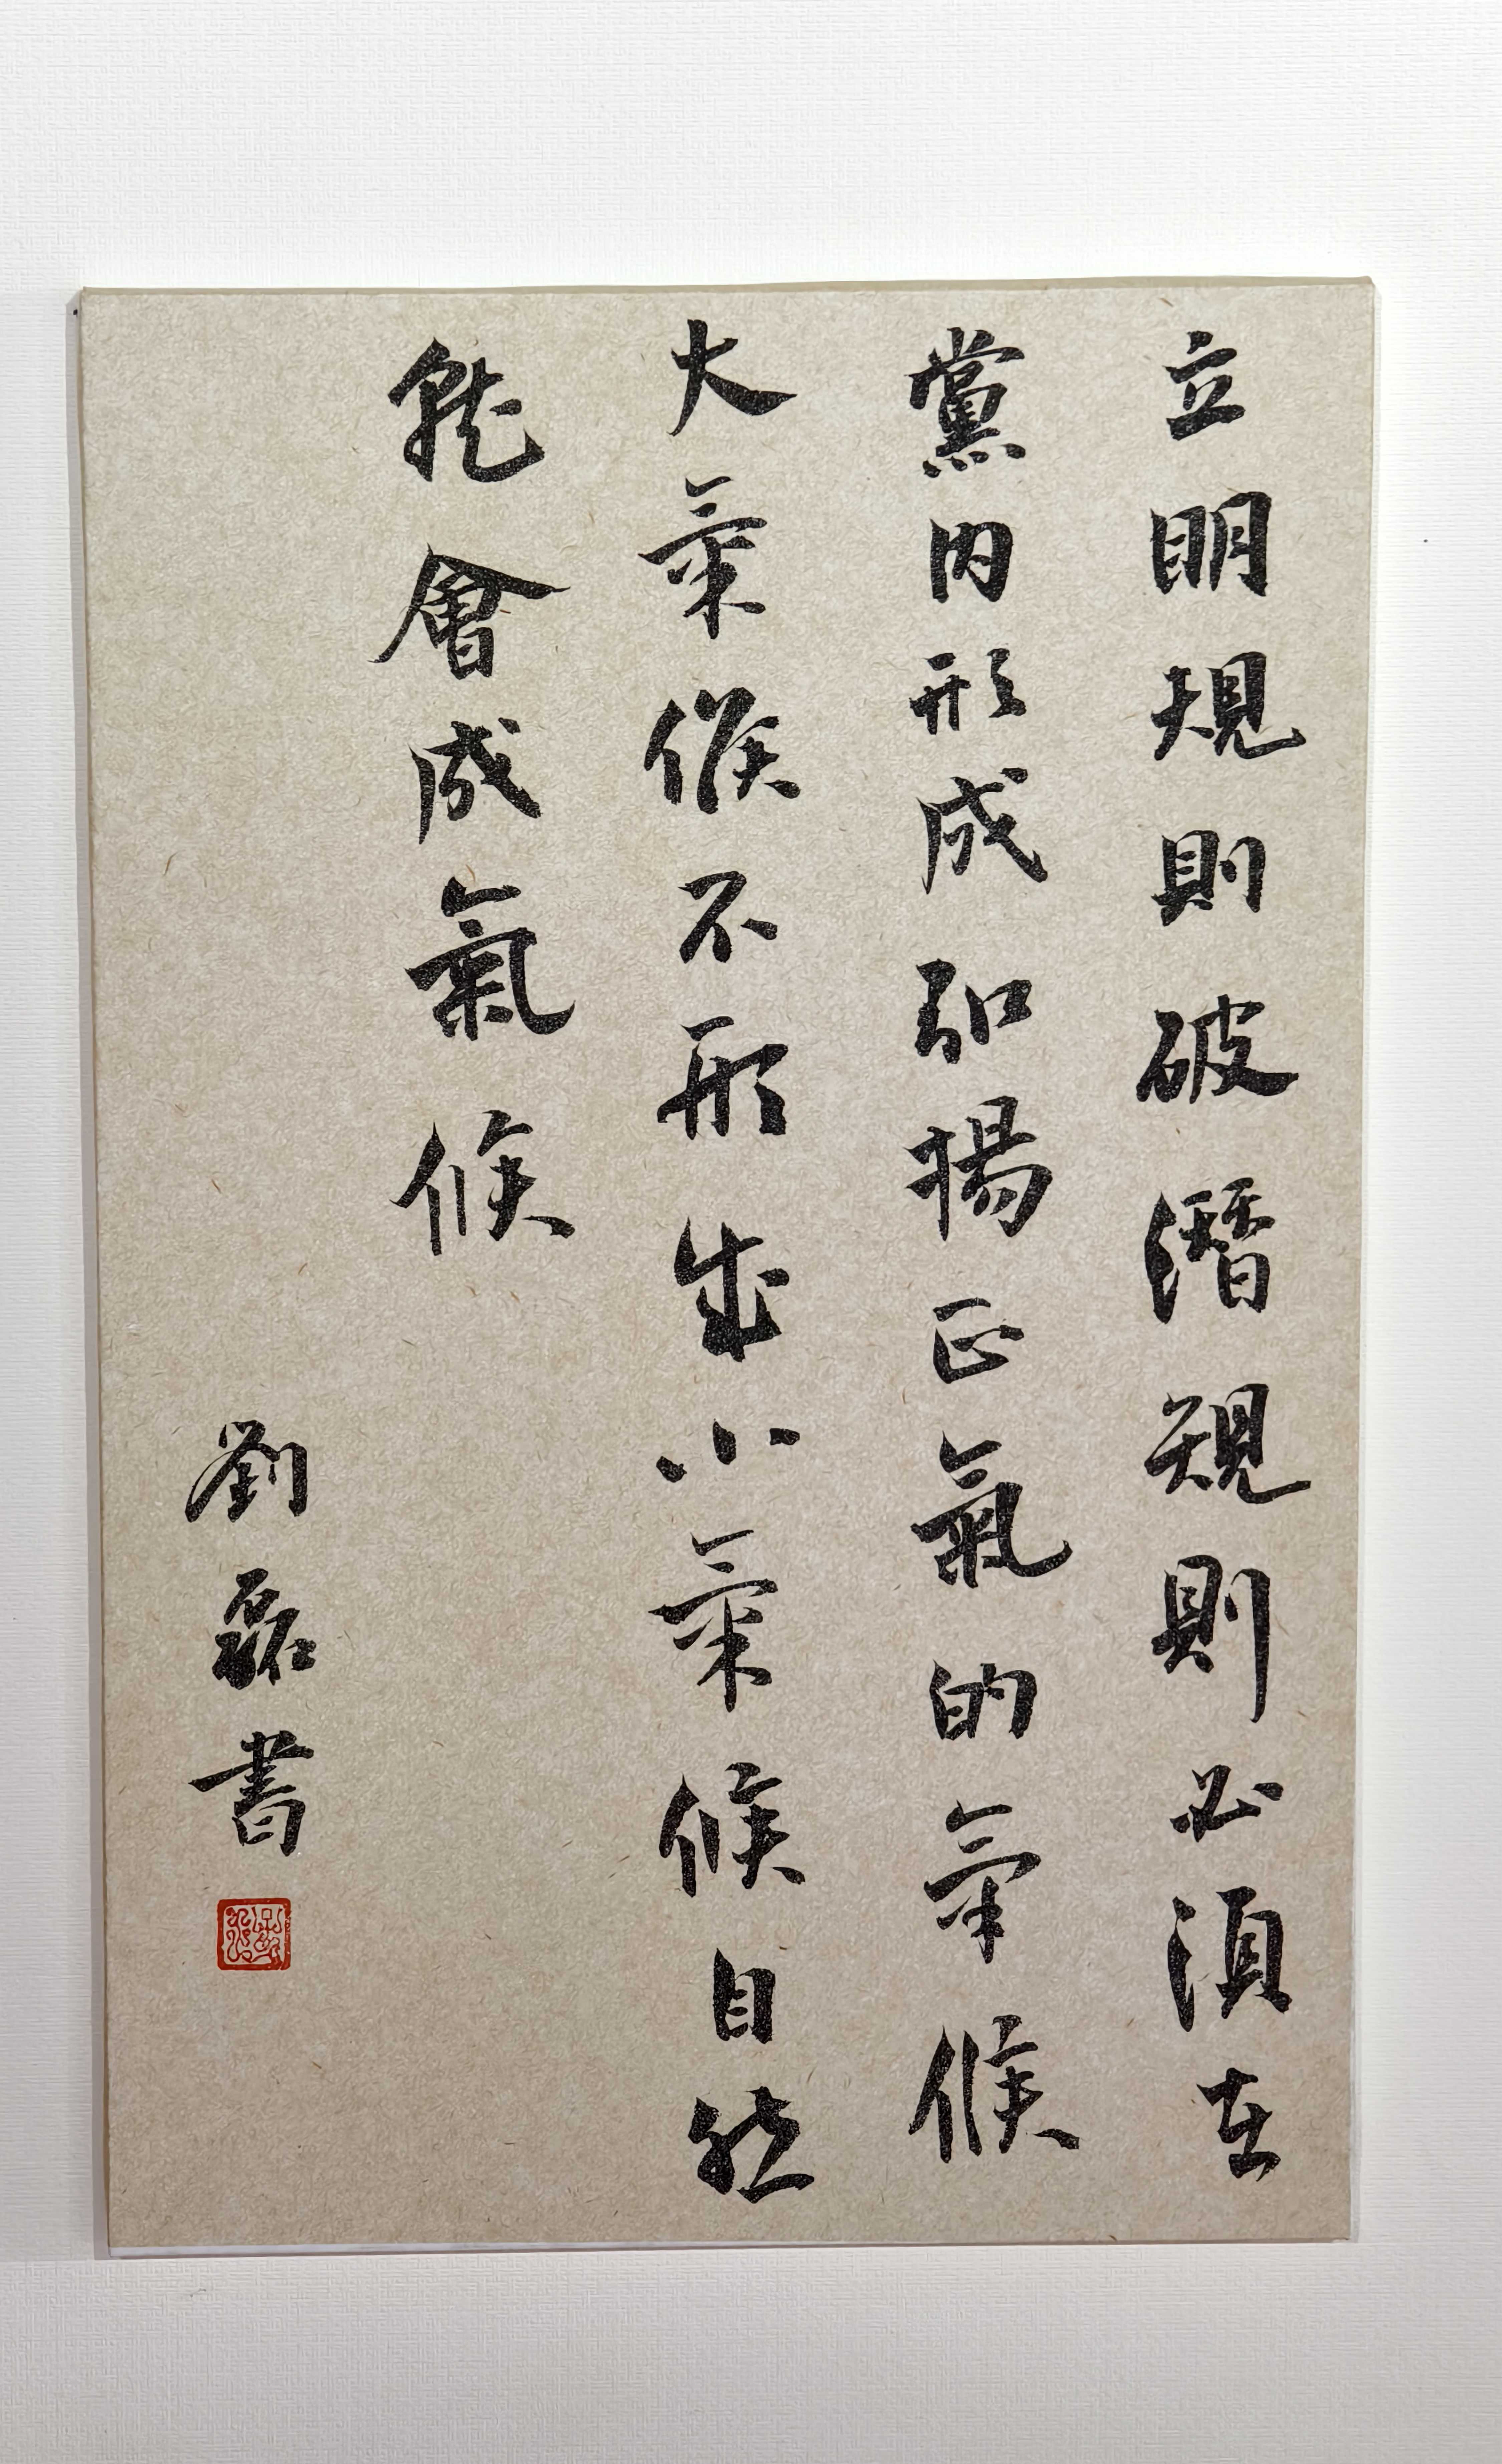 立明規則破潛規則必須在
黨内形成弘揚正氣的氣候
大氣候不形成小氣候自然
就會成氣候
劉磊書